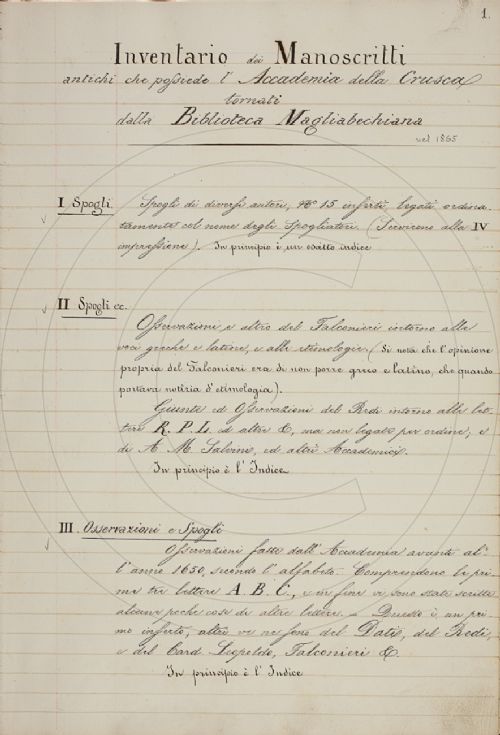 1.
Inventario dei Manoscritti
antichi che possiede l'Accademia della Crusca
tornati
dalla Biblioteca Magliabechiana
nel 1865
I Spogli. Spogli di diversi autori, N.º 15 inserti legati ordina-
tamente col nome degli Spogliatori. (Servirono alla IV
impressione). In principio è un esatto indice
II Spogli ec.
Osservazioni e altro del Falconieri intorno alle
voci greche e latine, e alle etimologie. (Si nota che l'opinione
propria del Falconieri era di non porre greco e latino, che quando
portava notizia d'etimologia).
Giunte ed Osservazioni del Redi intorno alle let-
tere R. P. L. ed altre &, ma non legate per ordine, e
di A. M. Salvini, ed altri Accademici.
In principio è l'Indice
III Osservazioni e Spogli
Osservazioni fatte dall'Accademia avanti al-
l'anno 1650, secondo l'alfabeto. Comprendono le pri-
me tre lettere A. B. C., e in fine vi sono state scritte
alcune poche cose di altre lettere. = Questo è un pri-
mo inserto, altri ve ne sono del Dati, del Redi,
e del Card. Leopoldo, Falconieri &.
In principio è l'Indice